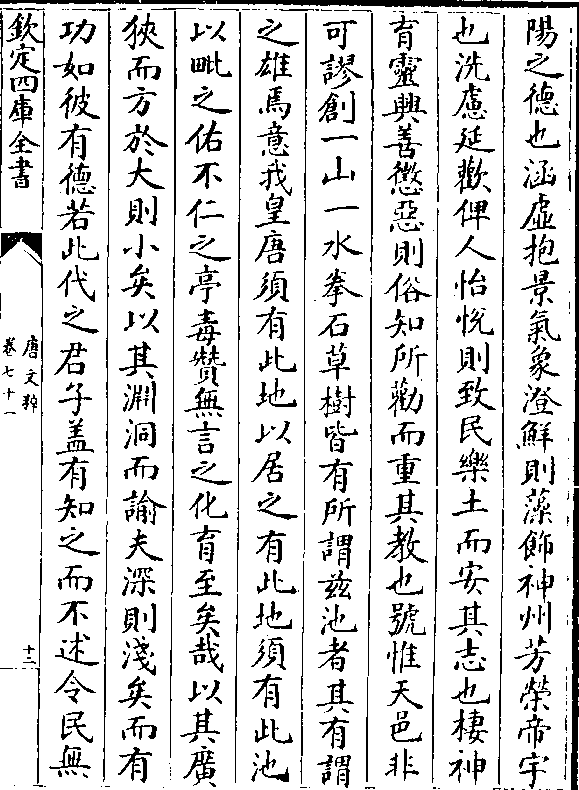 陽之德也涵虛抱景氣象澄鮮則藻飾神州芳榮帝宇
也洗慮延歡俾人怡悅則致民樂土而安其志也棲神
育靈興善懲惡則俗知所勸而重其教也號惟天邑非
可謬創一山一水拳石草樹皆有所謂兹池者其有謂
之雄焉意我皇唐須有此地以居之有此地須有此池
以毗之佑不仁之亭毒贊無言之化育至矣哉以其廣
狹而方於大則小矣以其淵洞而諭夫深則淺矣而有
功如彼有德若此代之君子盖有知之而不述令民無
欽定四庫全書
唐文粹
卷七十一
十二